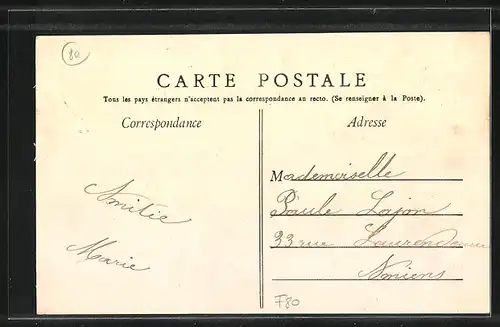 80
CARTE POSTALE
Tous les pays étrangers n'acceptent pas la correspondance au recto. (Se renseigner à la Poste).
Correspondance
Adresse
Amitié
Marie
Mademoiselle
Paule
33 rue
Amiens
F80